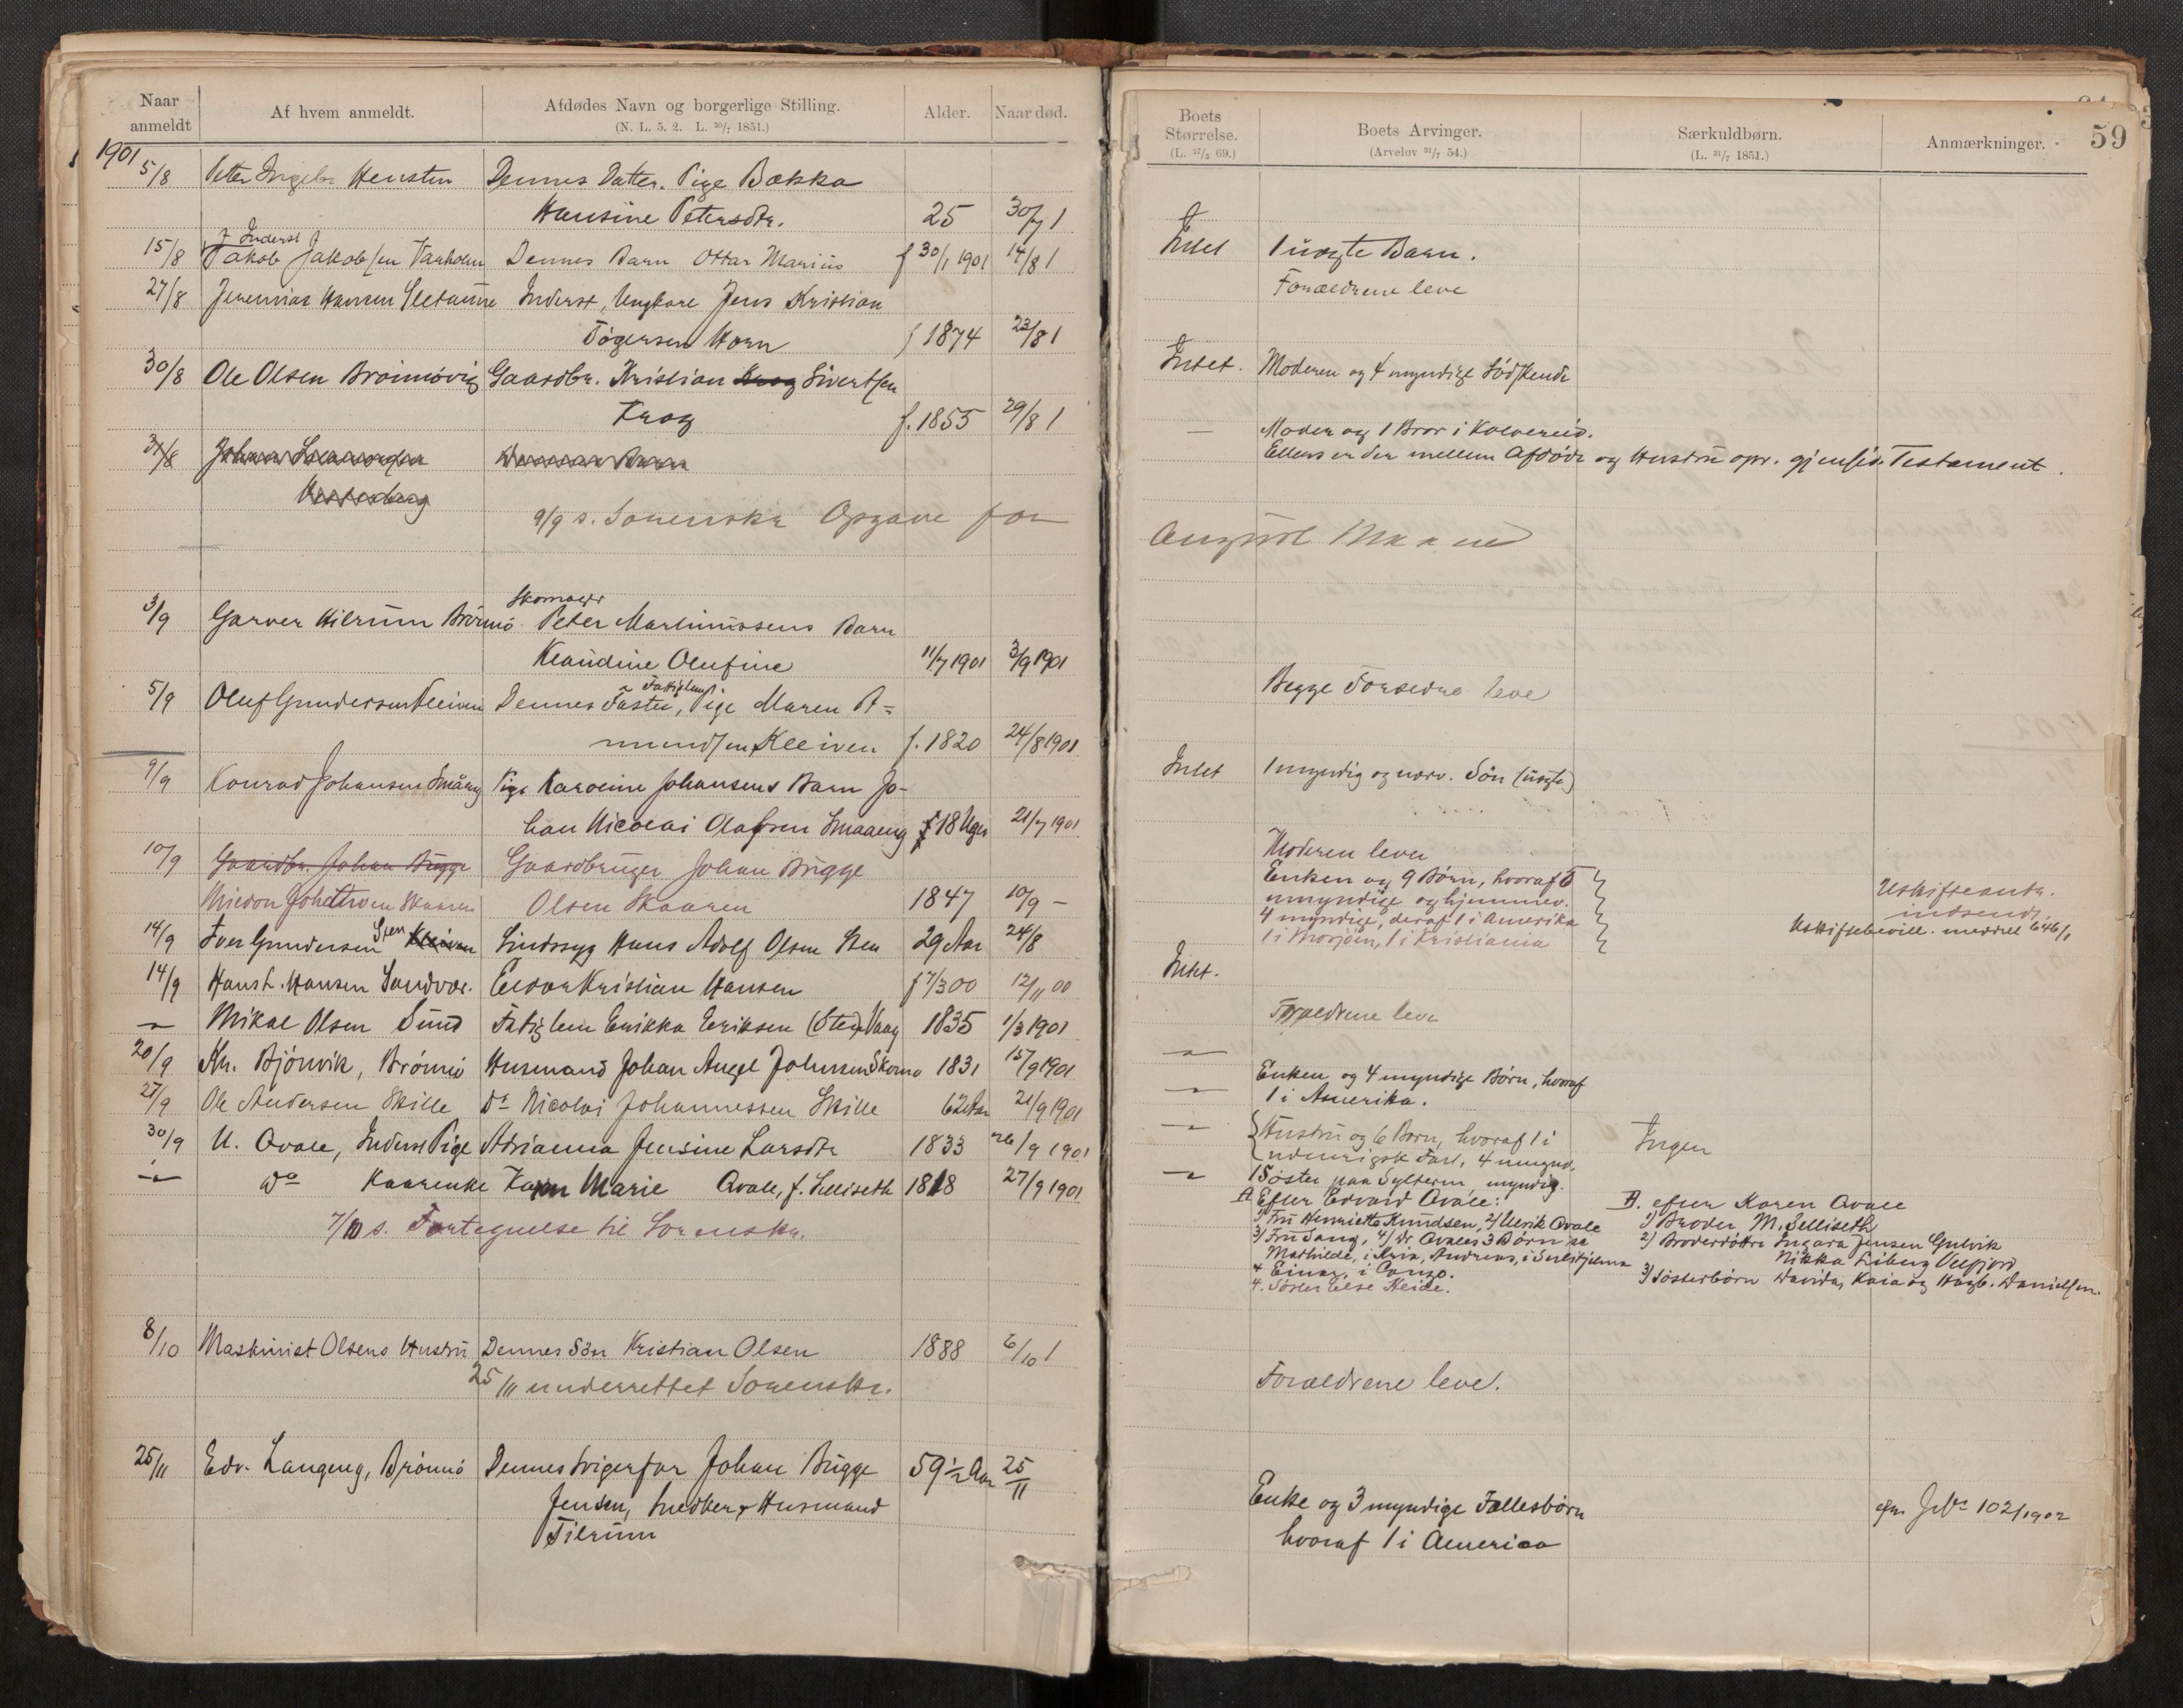 Naar anmeldt
Af hvem anmeldt.
Afdødes Navn og borgerlige Stilling.
(N. L. 5. 2. L. 30/7 1851.)
Alder.
Naar død.
1901
5/8 Peter Ingebr Hensten Dennes Datter. Pige Bokka
Hansine Petersdtr. 25 30/7 1
Inderst
15/8 Jakob Jakobsen Vanholm Dennes Barn Ottar Marius f 30/1 1901 14/8 1
27/8 Jeremias Hansen Sletaune Inderst, Ungkare Jens Kristian
Tøgersen Horn f 1874 23/8 1
30/8 Ole Olsen Brønnøvig Gaardbr. Kristian Krog Sivertsen
Krog f. 1855 29/8 1
31/8 Johan
9/9 s. Sorenskr Opgave for
3/9 Garver Hilrum Brønnø Skomager Peter Martinussens Barn
Klaudine Olufine 11/7 1901 3/9 1901
5/9 Oluf Gundersen Kleiven Dennes Faster, Fattiglem, Pige Maren A=
mundsen Kleiven f. 1820 24/8 1901
9/9 Konrad Johansen Småeng Pige Karoline Johansens Barn Jo-
han Nicolai Olafsen Smaaeng 18 Uger 21/7 1901
10/9 Gaardbr. Johan Bugge Gaardbruger Johan Bugge
Skaaren Olsen Skaaren 1847 10/9 -
14/9 Iver Gundersen Sten Kleiven Sindssyg Hans Adolf Olsen Sten 29 Aar 24/8
14/9 Hans L. Hansen Sandvær. Eidvar Kristian Hansen f 7/3 00 12/11 00
" Mikal Olsen Sund Fatiglem Erikka Eriksen (Sten) Vaag 1835 1/3 1901
20/9 Kr. Bjørnvik, Brønnø Husmand Johan Angel Johnsen Skomo 1831 15/9 1901
27/9 Ole Andersen Skille Do Nicolai Johannessen Skille 62 Aar 21/9 1901
30/9 U. Qvale, Inderst Pige Adrianna Jensine Larsdtr 1833 26/9 1901
" do Kaarenke Karen Marie Qvale, f. Selliseth 1818 27/9 1901
7/10 s. Fortegnelse til Sorenskr.
8/10 Maskinist Olsens Hustru Dennes Søn Kristian Olsen 1888 6/10 1
25/11 underrettet Sorenskr.
25/11 Edv. Langeng, Brønnø Dennes Svigerfar Johan Bugge 59 1/2 Aar 25/11
Jensen, Snedker & Husmand
Tilrum
59
Boets Størrelse.
(L. 12/5 69.)
Boets Arvinger.
(Arvelov 31/7 54.)
Særkuldbørn.
(L. 31/7 1851.)
Anmærkninger.
Intet 1 uægte Barn.
Forældrene leve
Intet. Moderen og 4 myndige Sødskende
— Moder og 1 Bror i Kolvereid.
Ellers er der mellem Afdøde og Hustru opr. gjensid. Testament.
August Maaned
Begge Forældre leve
Intet 1 myndig og nærv. Søn (uægte)
Moderen lever
Enken og 9 Børn, hvoraf 5
umyndige og hjemmev.
4 myndige, deraf 1 i Amerika
1 i Mosjøen, 1 i Kristiania
Uskifteantr.
indsendt.
Uskiftebevill. meddelt 646/1
Intet.
Forældrene leve
" Enken og 4 myndige Børn, hvoraf
" 1 i Amerika.
" Hustru og 6 Barn, hvoraf 1 i
udenrigsk Fart, 4 umynd. Ingen
" 1 Søster paa Sylteren, myndig.
A Efter Edvard Qvale:
1) Fru Henriette Knudsen, 2) Ulrik Qvale
3) Fru Sang, 4) Dr Qvales 3 Børn
Mathilde, i Kria, Andreas, i Sulitjelma
& Einar, i Congo.
4. Søster Else Heide.
B. efter Karen Qvale
1) Broder M. Selliseth
2) Broderdøttre Ingara Jensen Gulvik
Nikka Liberg Velfjord
3) Søsterbørn Davida, Kaia og Hagb. Danielsen.
Forældrene leve.
Enke og 3 myndige Fællesbørn
hvoraf 1 i America
102/1902